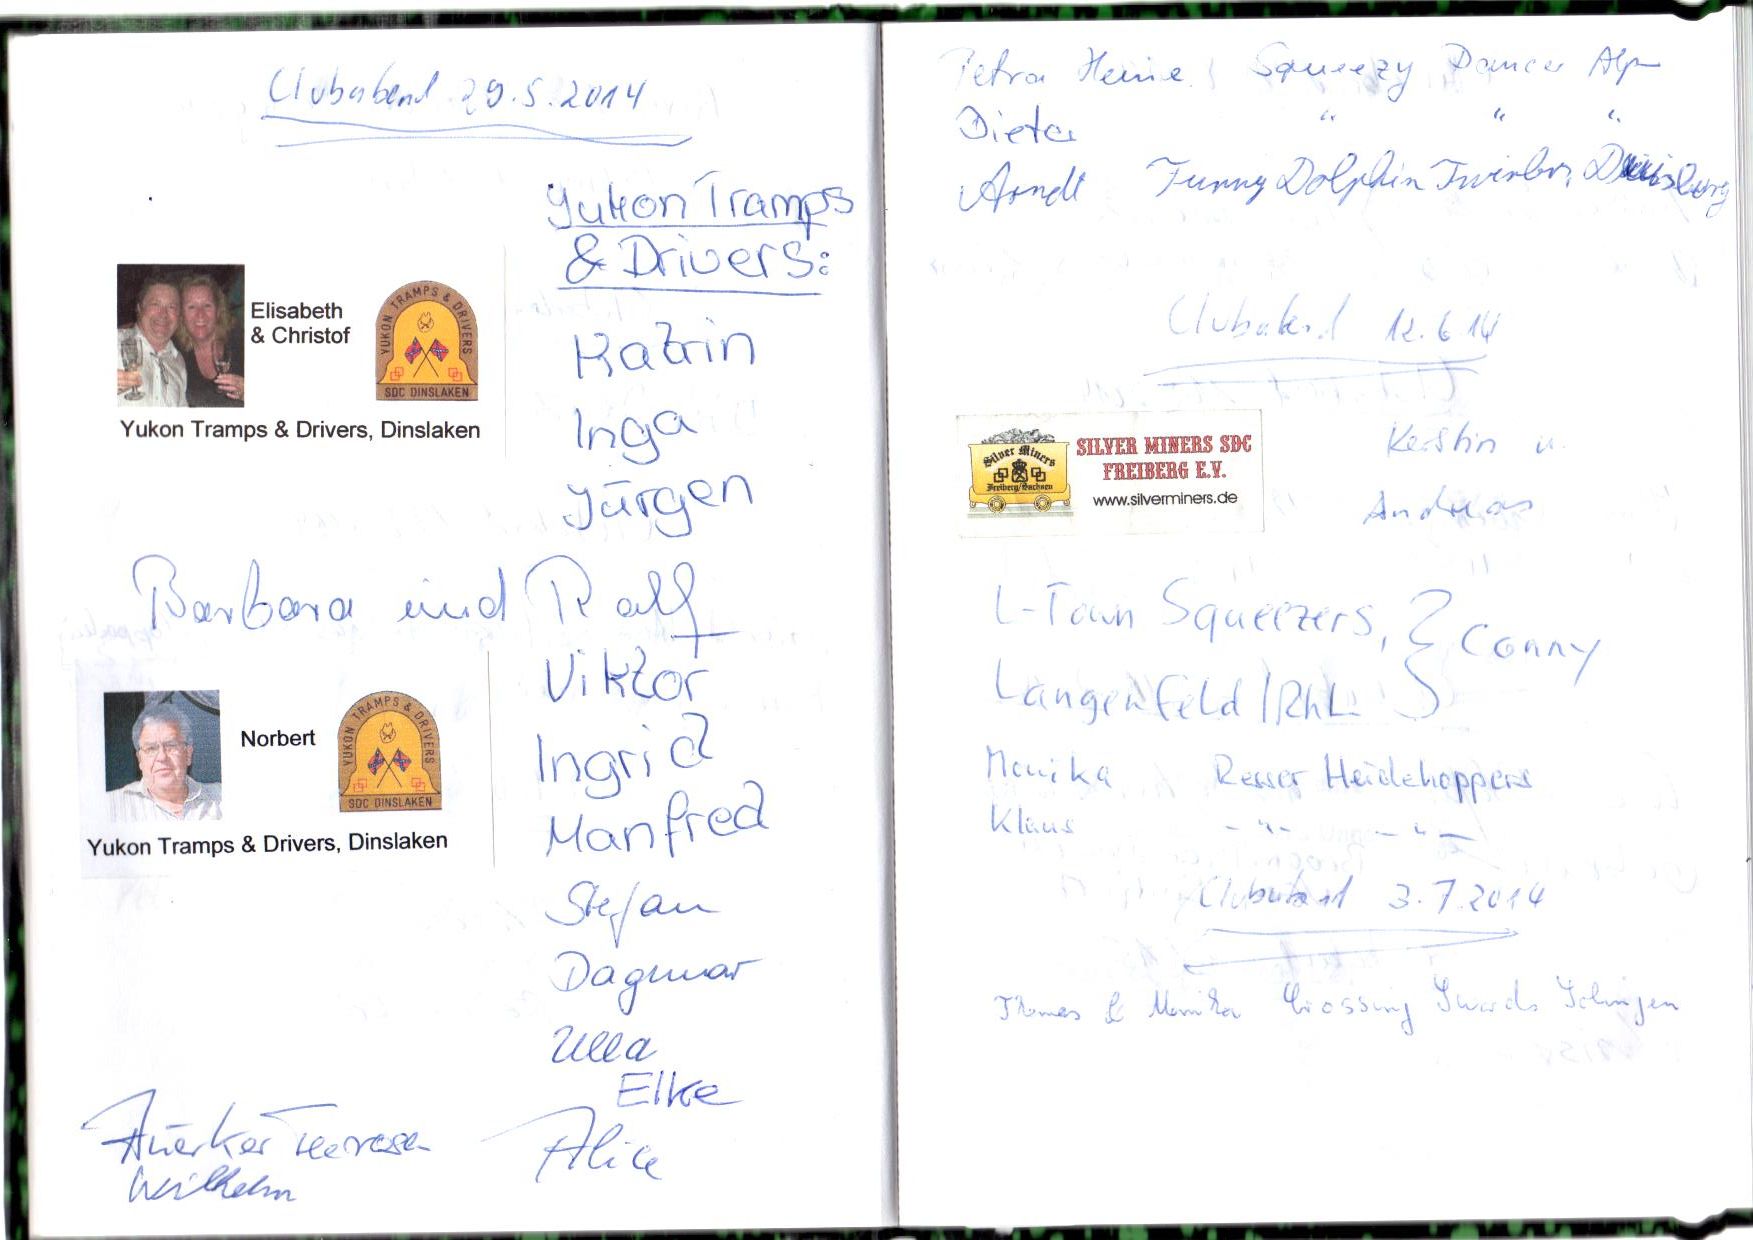 Clubabend 29.5.2014
Yukon Tramps
& Drivers:
Elisabeth
& Christof
YUKON TRAMPS & DRIVERS
SDC DINSLAKEN
Yukon Tramps & Drivers, Dinslaken
Katrin
Inga
Jürgen
Barbara und Ralf
Viktor
Norbert
YUKON TRAMPS & DRIVERS
SDC DINSLAKEN
Yukon Tramps & Drivers, Dinslaken
Ingrid
Manfred
Stefan
Dagmar
Ulla
Elke
Theresa
Wilhelm
Alice
Petra Heine Squeezy Dancer Alpen
Dieter " " "
Arndt Funny Dolphin Twirlers, Duisburg
Clubabend 12.6.14
Silver Miners
Freiberg/Sachsen
SILVER MINERS SDC
FREIBERG E.V.
www.silverminers.de
Kerstin u.
Andreas
L-Town Squeezers, } Conny
Langenfeld/Rhl.
Monika Resser Heidehoppers
Klaus - " - - " -
Clubabend 3.7.2014
Thomas & Monika Crossing Swords Solingen